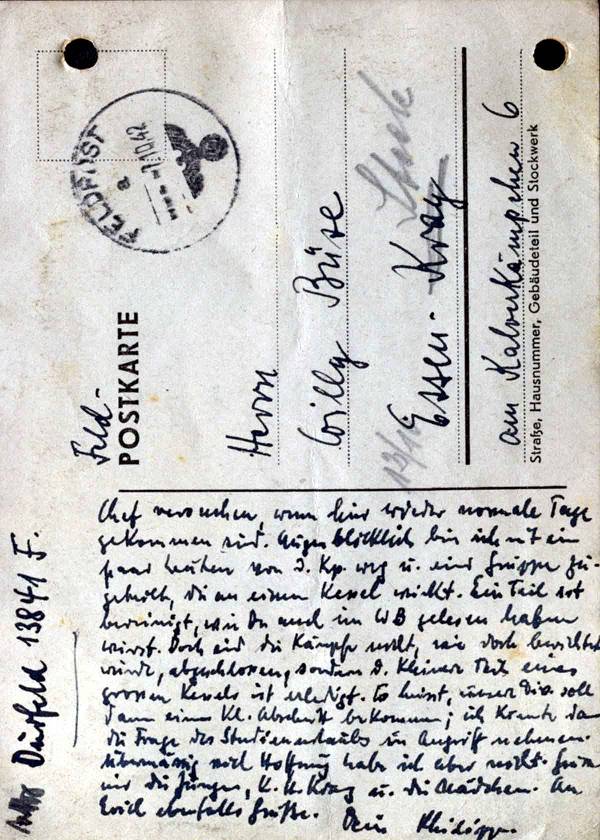 FELDPOST
a
-7.10.42
Feld-
POSTKARTE
Herrn
Willy Büse
Essen-Kray
am Kalverkämpchen 6
Straße, Hausnummer, Gebäudeteil und Stockwerk
Dürfeld 13841 F.
Chef versuchen, wenn hier wieder normale Tage
gekommen sind. Augenblicklich bin ich mit ein
paar Leuten von d. Kp. weg u. einer Gruppe zu-
geteilt, die an einem Kessel wirkt. Ein Teil ist
bereinigt, wie Du auch im WB gelesen haben
wirst. Doch sind die Kämpfe nicht, wie dort berichtet
wurde, abgeschlossen, sondern d. kleinere Teil eines
grossen Kessels ist erledigt. Es heisst, unser Div. soll
dann einen kl. Abschnitt bekommen; ich könnte dann
die Frage des Studienurlaubs in Angriff nehmen.
Übermässig viel Hoffnung habe ich aber nicht. Grüsse
mir die Jungen, Kray u. die Mädchen. An
Erich ebenfalls Grüsse. Dein Philipp.